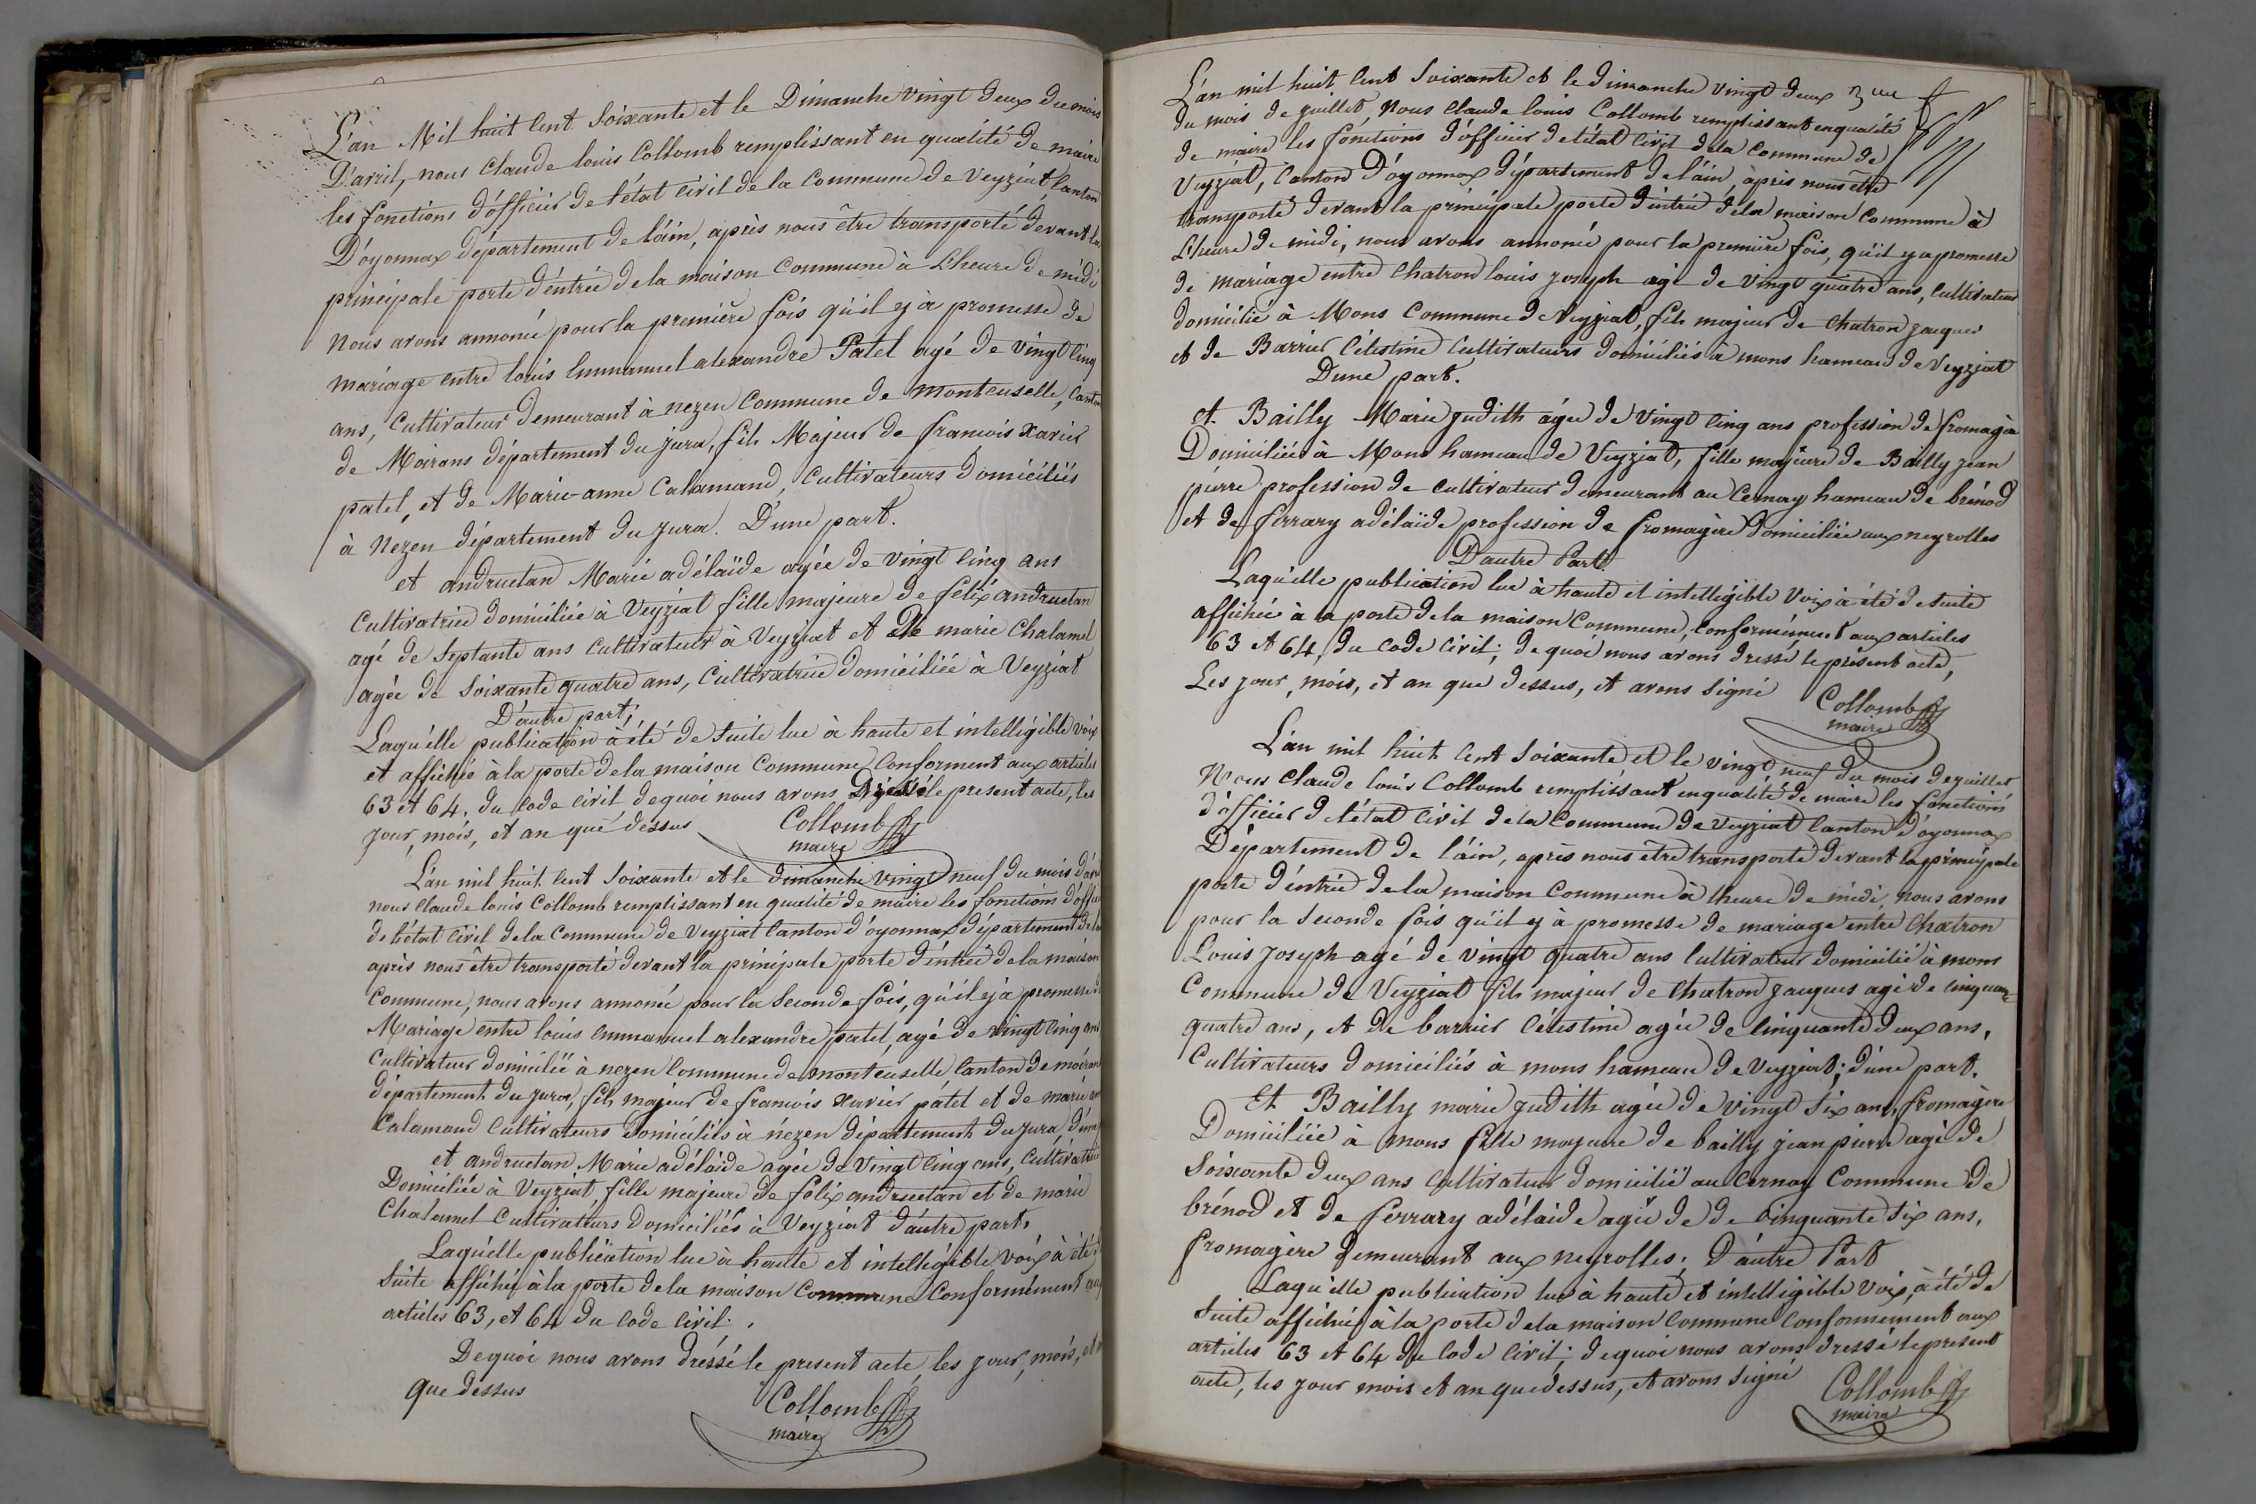 L'an Mil huit Cent Soixante et le Dimanche vingt deux du mois
D'avril, nous Claude louis Collomb remplissant en qualité de maire
les fonctions d'officier de l'état Civil de la Commune de Veyziat Canton
D'óyonnax département de láin, après nous être transporté devant la
principale porte d'éntrée de la maison Commune à L'heure de midi
Nous avons annoncé pour la première fois qu'il y à promesse de
mariage entre louis Emmanuel alexandre Patel agé de vingt Cinq
ans, Cultivateur demeurant à nezen Commune de montcuselle, Canton
de Moirans département du jura, fils Majeur de francois Xavier
patel, et de Marie-anne Calamand, Cultivateurs Domiciliés
à Nezen département du jura. D'une part.
et andructan Marie adélaïde agée de vingt Cinq ans
Cultivatrice domiciliée à Veyziat fille majeure de félix andructan
agé de Septante ans Cultivateur à Veyziat et de marie Chalamel
agée de Soixante quatre ans, Cultivatrice domiciliée à Veyziat
D'autre part;
Laquélle publication à été de suite lue à haute et intelligible voix
et affichée à la porte de la maison Commune Conforment aux articles
63 et 64. du Code Civil dequoi nous avons Dréssé le present acte, les
jour, mois, et an que dessus
Collomb
maire
L'an mil huit Cent Soixante et le dimanche vingt neuf du mois d'avril
nous Claude louis Collomb remplissant en qualité de maire les fonctions d'offic
de l'état Civil de la Commune de Veyziat Canton d'óyonnax département de la
après nous être transporté devant la principale porte d'éntrée de la maison
Commune, nous avons annoncé pour la Seconde fois, qu'il y à promesse d
Mariage entre louis emmanuel alexandre patel, agé de vingt Cinq ans
Cultivateur domicilié à nezen Commune de montcuselle Canton de moirans
département du jura, fils majeur de francois xavier patel et de marie an
Calamand Cultivateurs domiciliés à nezen département du jura, d'une
et andructan Marie adélaïde agée de Vingt Cinq ans, Cultivatrice
Domiciliée à Veyziat, fille majeure de félix andructan et de marie
Chalamel Cultivateurs domiciliés à Veyziat d'autre part.
Laquélle publication lue à haute et intelligible voix à été d
Suite affichée à la porte de la maison Commune Conformément aux
articles 63, et 64 du Code Civil.
Dequoi nous avons dréssé le present acte, les jour, mois, et
que dessus
Collomb
maire
L'an mil huit Cent Soixante et le dimanche vingt deux
du mois de juillet, Nous Claude louis Collomb remplissant en qualité
de maire les fonctions d'officier de l'état Civil de la Commune de
Veyziat, Canton D'óyonnax département de láin, àprès nous être
transporté devant la principale porte d'éntrée de la maison Commune à
L'heure de midi, nous avons annoncé pour la première fois, qu'il y a promesse
de mariage entre Chatron louis joseph agé de Vingt quatre ans, Cultivateur
domicilié à Mons Commune de Veyziat, fils majeur de Chatron jacques
et de Barrier Célestine Cultivateurs domiciliés à mons hameau de Veyziat
Dune part.
et Bailly Marie judith agée de Vingt Cinq ans profession de fromagère
Domiciliée à Mons hameau de Veyziat, fille majeure de Bailly jean
pierre profession de cultivateur demeurant au Cernay hameau de brénod
et de ferrary adélaïde profession de fromagère Domiciliée aux neyrolles
Dautre Part
Laquélle publication lue à haute et intelligible Voix à été de suite
affichée à la porte de la maison Commune, Conformément aux articles
63 et 64, du Code Civil; de quoi nous avons dressé le présent acte,
Les jour, mois, et an que dessus, et avons signé
Collomb
maire
L'an mil huit Cent Soixante et le vingt neuf du mois de juillet
Nous Claude louis Collomb remplissant en qualité de maire les fonctions
d'officier de l'état Civil de la Commune de Veyziat Canton d'óyonnax
Département de láin, après nous être transporté devant la principale
porte d'éntrée de la maison Commune à lheure de midi, nous avons
pour la Seconde fois qu'il y à promesse de mariage entre Chatron
Louis Joseph agé de vingt quatre ans Cultivateur domicilié à mons
Commune de Veyziat fils majeur de Chatron jacques agé de Cinquan=
quatre ans, et de barrier Célestine agée de Cinquante deux ans,
Cultivateurs domiciliés à mons hameau de Veyziat; d'une part.
Et Bailly marie judith agée de vingt six ans, fromagère
Domiciliée à mons fille majeure de bailly jean pierre agé de
Soixante deux ans Cultivateur domicilié au Cernay Commune de
brénod et de ferrary adélaide agée de de Cinquante six ans,
fromagère demeurant aux neyrolles; D'autre Part
Laquélle publication lue à haute et intelligible Voix, à été de
suite affichée à la porte de la maison Commune Conformement aux
articles 63 et 64 du Code Civil; dequoi nous avons dressé le present
acte, les jour mois et an que dessus, et avons signé
Collomb
maire